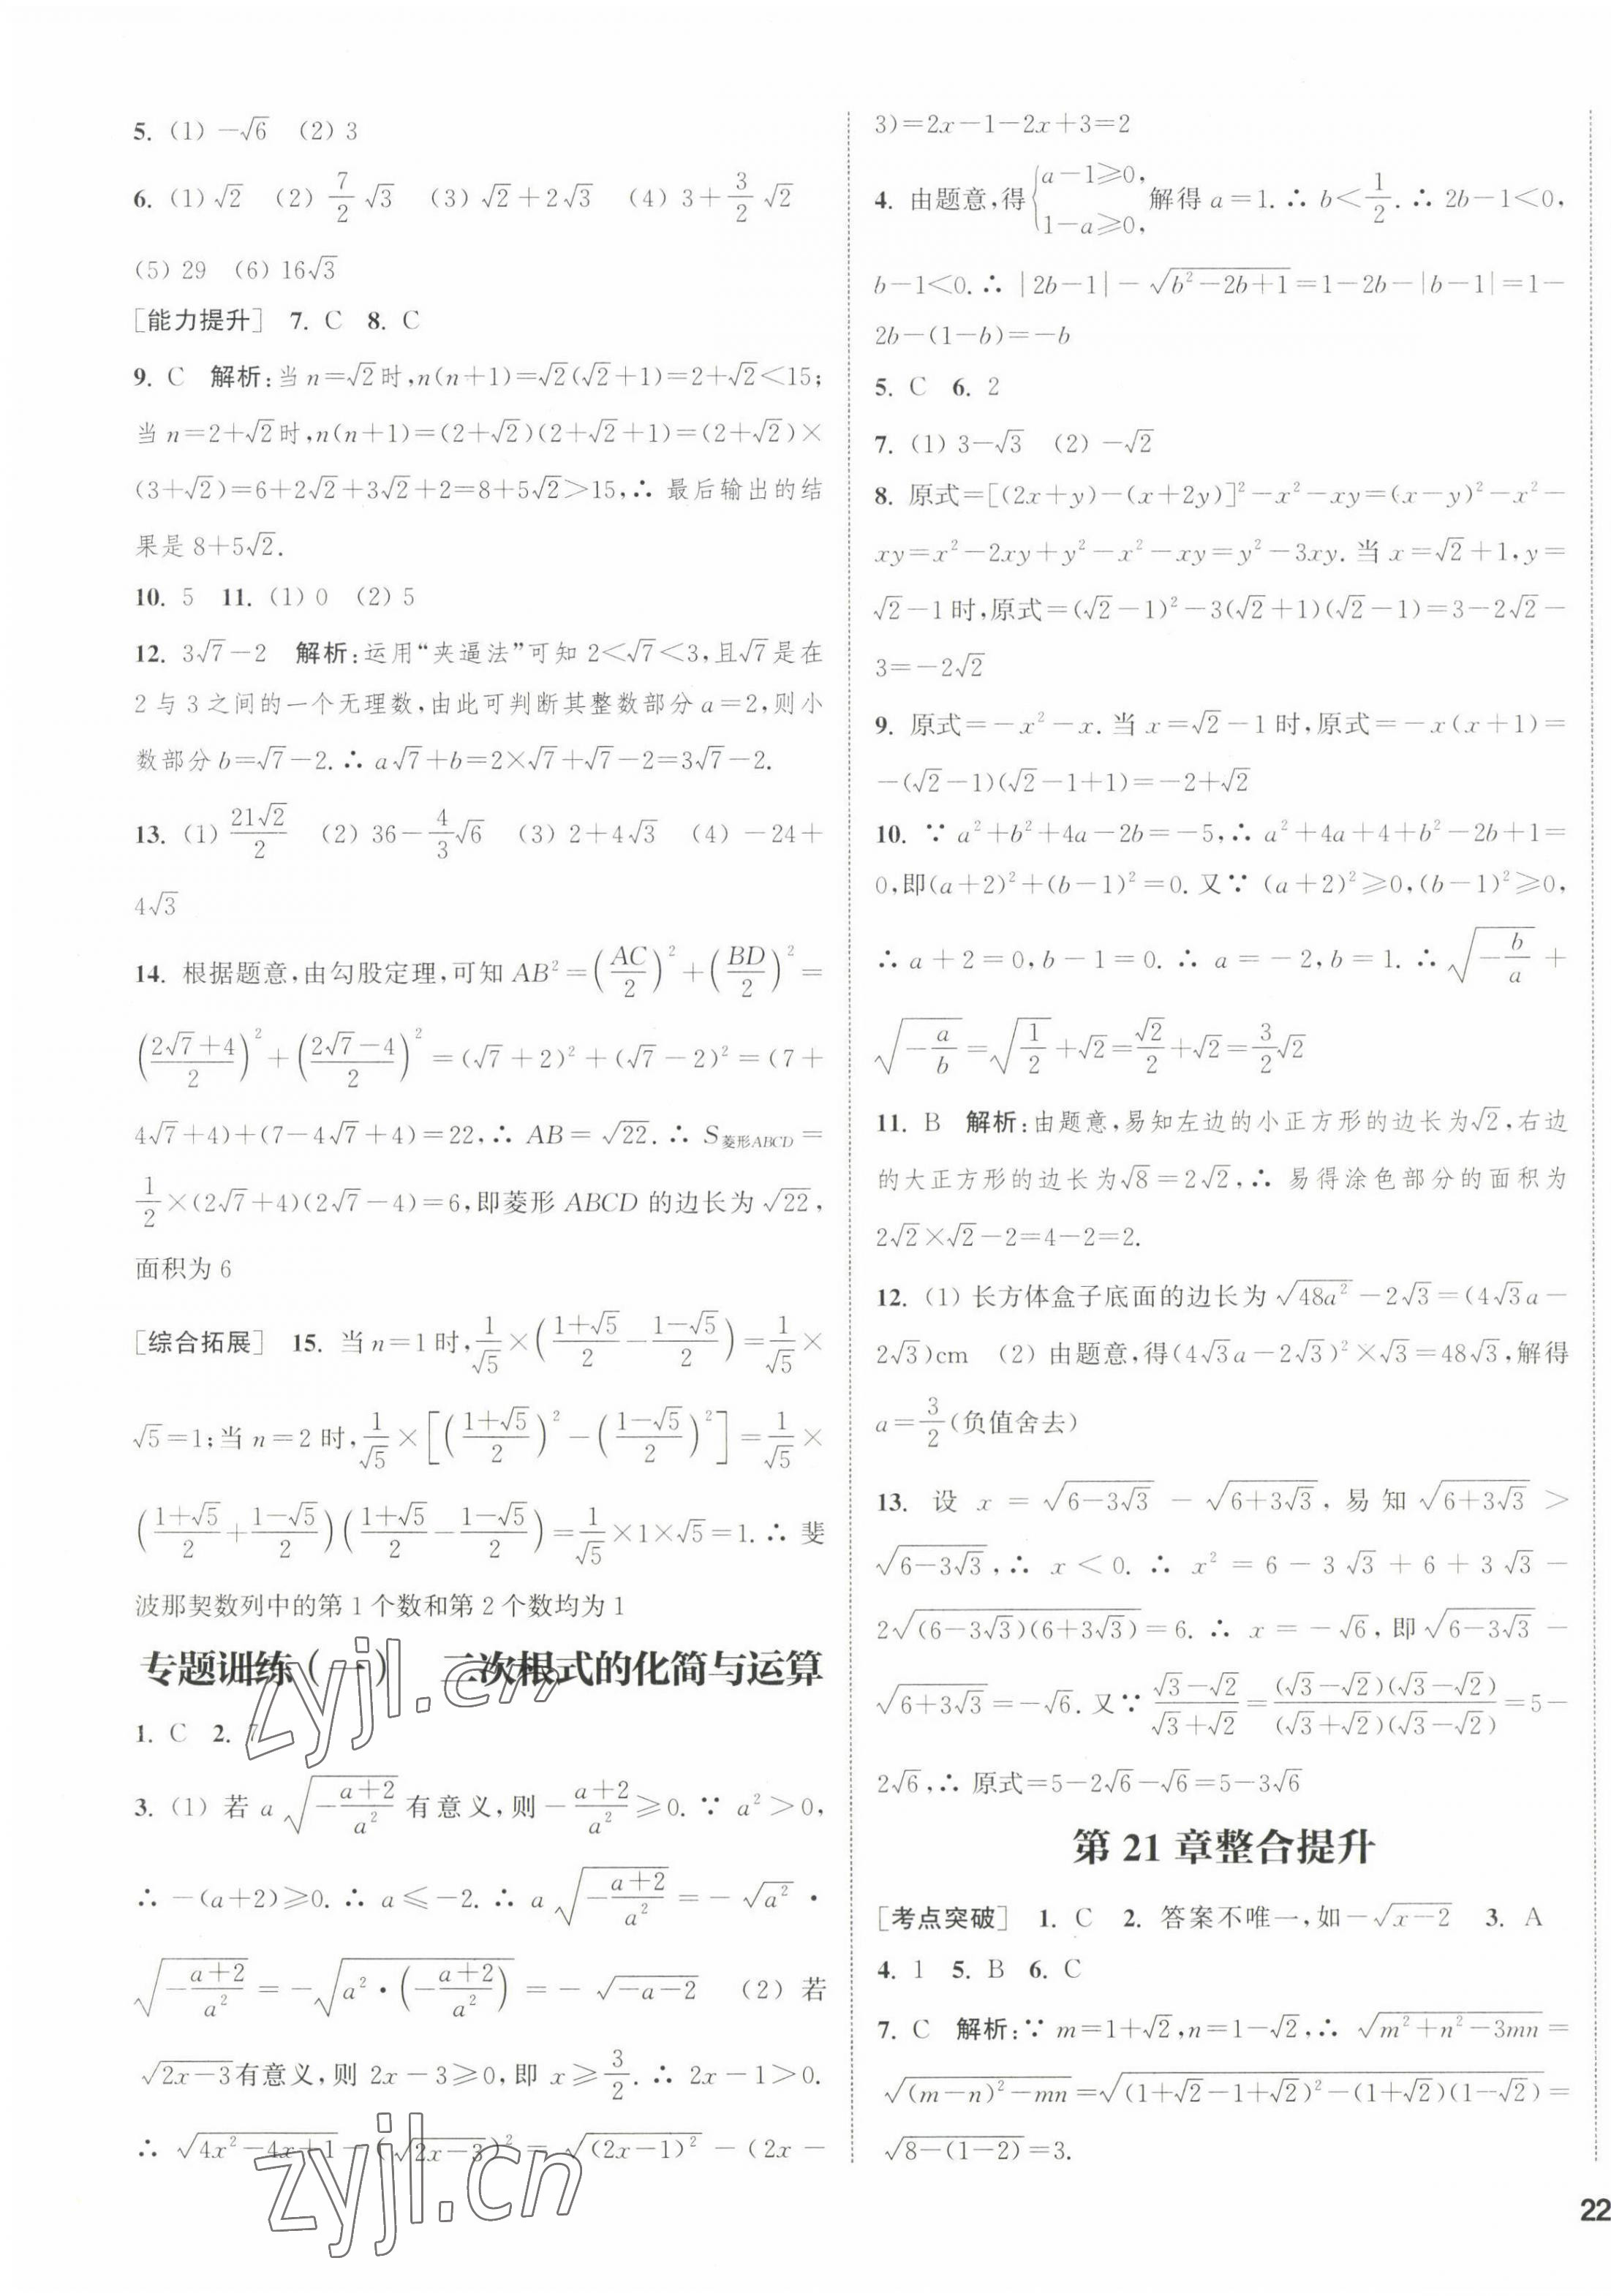 5. (1) −√6　(2) 3
6. (1) √2　(2) 7/2 √3　(3) √2+2√3　(4) 3+3/2 √2
(5) 29　(6) 16√3
[能力提升]　7. C　8. C
9. C　解析:当 n=√2时,n(n+1)=√2(√2+1)=2+√2<15;
当 n=2+√2时,n(n+1)=(2+√2)(2+√2+1)=(2+√2)×
(3+√2)=6+2√2+3√2+2=8+5√2>15,∴ 最后输出的结
果是 8+5√2.
10. 5　11. (1) 0　(2) 5
12. 3√7−2　解析:运用“夹逼法”可知 2<√7<3,且√7是在
2 与 3 之间的一个无理数,由此可判断其整数部分 a=2,则小
数部分 b=√7−2.∴ a√7+b=2×√7+√7−2=3√7−2.
13. (1) 21√2/2　(2) 36−4/3√6　(3) 2+4√3　(4) −24+
4√3
14. 根据题意,由勾股定理,可知 AB²=(AC/2)²+(BD/2)²=
((2√7+4)/2)²+((2√7−4)/2)²=(√7+2)²+(√7−2)²=(7+
4√7+4)+(7−4√7+4)=22,∴ AB=√22.∴ S菱形ABCD=
1/2×(2√7+4)(2√7−4)=6,即菱形 ABCD 的边长为√22,
面积为 6
[综合拓展]　15. 当 n=1 时,1/√5×((1+√5)/2−(1−√5)/2)=1/√5×
√5=1;当 n=2 时,1/√5×[((1+√5)/2)²−((1−√5)/2)²]=1/√5×
((1+√5)/2+(1−√5)/2)((1+√5)/2−(1−√5)/2)=1/√5×1×√5=1.∴ 斐
波那契数列中的第 1 个数和第 2 个数均为 1
专题训练( )　二次根式的化简与运算
1. C　2. 7
3. (1) 若 a√(−(a+2)/a²)有意义,则−(a+2)/a²≥0.∵ a²>0,
∴ −(a+2)≥0.∴ a≤−2.∴ a√(−(a+2)/a²)=−√(a²)·
√(−(a+2)/a²)=−√(a²·(−(a+2)/a²))=−√(−a−2)　(2) 若
√(2x−3)有意义,则 2x−3≥0,即 x≥3/2.∴ 2x−1>0.
∴ √(4x²−4x+1)−(√(2x−3))²=√((2x−1)²)−(2x−
3)=2x−1−2x+3=2
4. 由题意,得{a−1≥0, 1−a≥0, 解得 a=1.∴ b<1/2.∴ 2b−1<0,
b−1<0.∴ |2b−1|−√(b²−2b+1)=1−2b−|b−1|=1−
2b−(1−b)=−b
5. C　6. 2
7. (1) 3−√3　(2) −√2
8. 原式=[(2x+y)−(x+2y)]²−x²−xy=(x−y)²−x²−
xy=x²−2xy+y²−x²−xy=y²−3xy.当 x=√2+1,y=
√2−1时,原式=(√2−1)²−3(√2+1)(√2−1)=3−2√2−
3=−2√2
9. 原式=−x²−x.当 x=√2−1时,原式=−x(x+1)=
−(√2−1)(√2−1+1)=−2+√2
10. ∵ a²+b²+4a−2b=−5,∴ a²+4a+4+b²−2b+1=
0,即(a+2)²+(b−1)²=0.又∵ (a+2)²≥0,(b−1)²≥0,
∴ a+2=0,b−1=0.∴ a=−2,b=1.∴ √(−b/a)+
√(−a/b)=√(1/2)+√2=√2/2+√2=3/2√2
11. B　解析:由题意,易知左边的小正方形的边长为√2,右边
的大正方形的边长为√8=2√2,∴ 易得涂色部分的面积为
2√2×√2−2=4−2=2.
12. (1) 长方体盒子底面的边长为√(48a²)−2√3=(4√3a−
2√3)cm　(2) 由题意,得(4√3a−2√3)²×√3=48√3,解得
a=3/2(负值舍去)
13. 设 x=√(6−3√3)−√(6+3√3),易知√(6+3√3)>
√(6−3√3),∴ x<0.∴ x²=6−3√3+6+3√3−
2√((6−3√3)(6+3√3))=6.∴ x=−√6,即√(6−3√3)−
√(6+3√3)=−√6.又∵ (√3−√2)/(√3+√2)=(√3−√2)(√3−√2)/(√3+√2)(√3−√2)=5−
2√6,∴ 原式=5−2√6−√6=5−3√6
第 21 章整合提升
[考点突破]　1. C　2. 答案不唯一,如−√(x−2)　3. A
4. 1　5. B　6. C
7. C　解析:∵ m=1+√2,n=1−√2,∴ √(m²+n²−3mn)=
√((m−n)²−mn)=√((1+√2−1+√2)²−(1+√2)(1−√2))=
√(8−(1−2))=3.
22
zyjl.cn
zyjl.cn